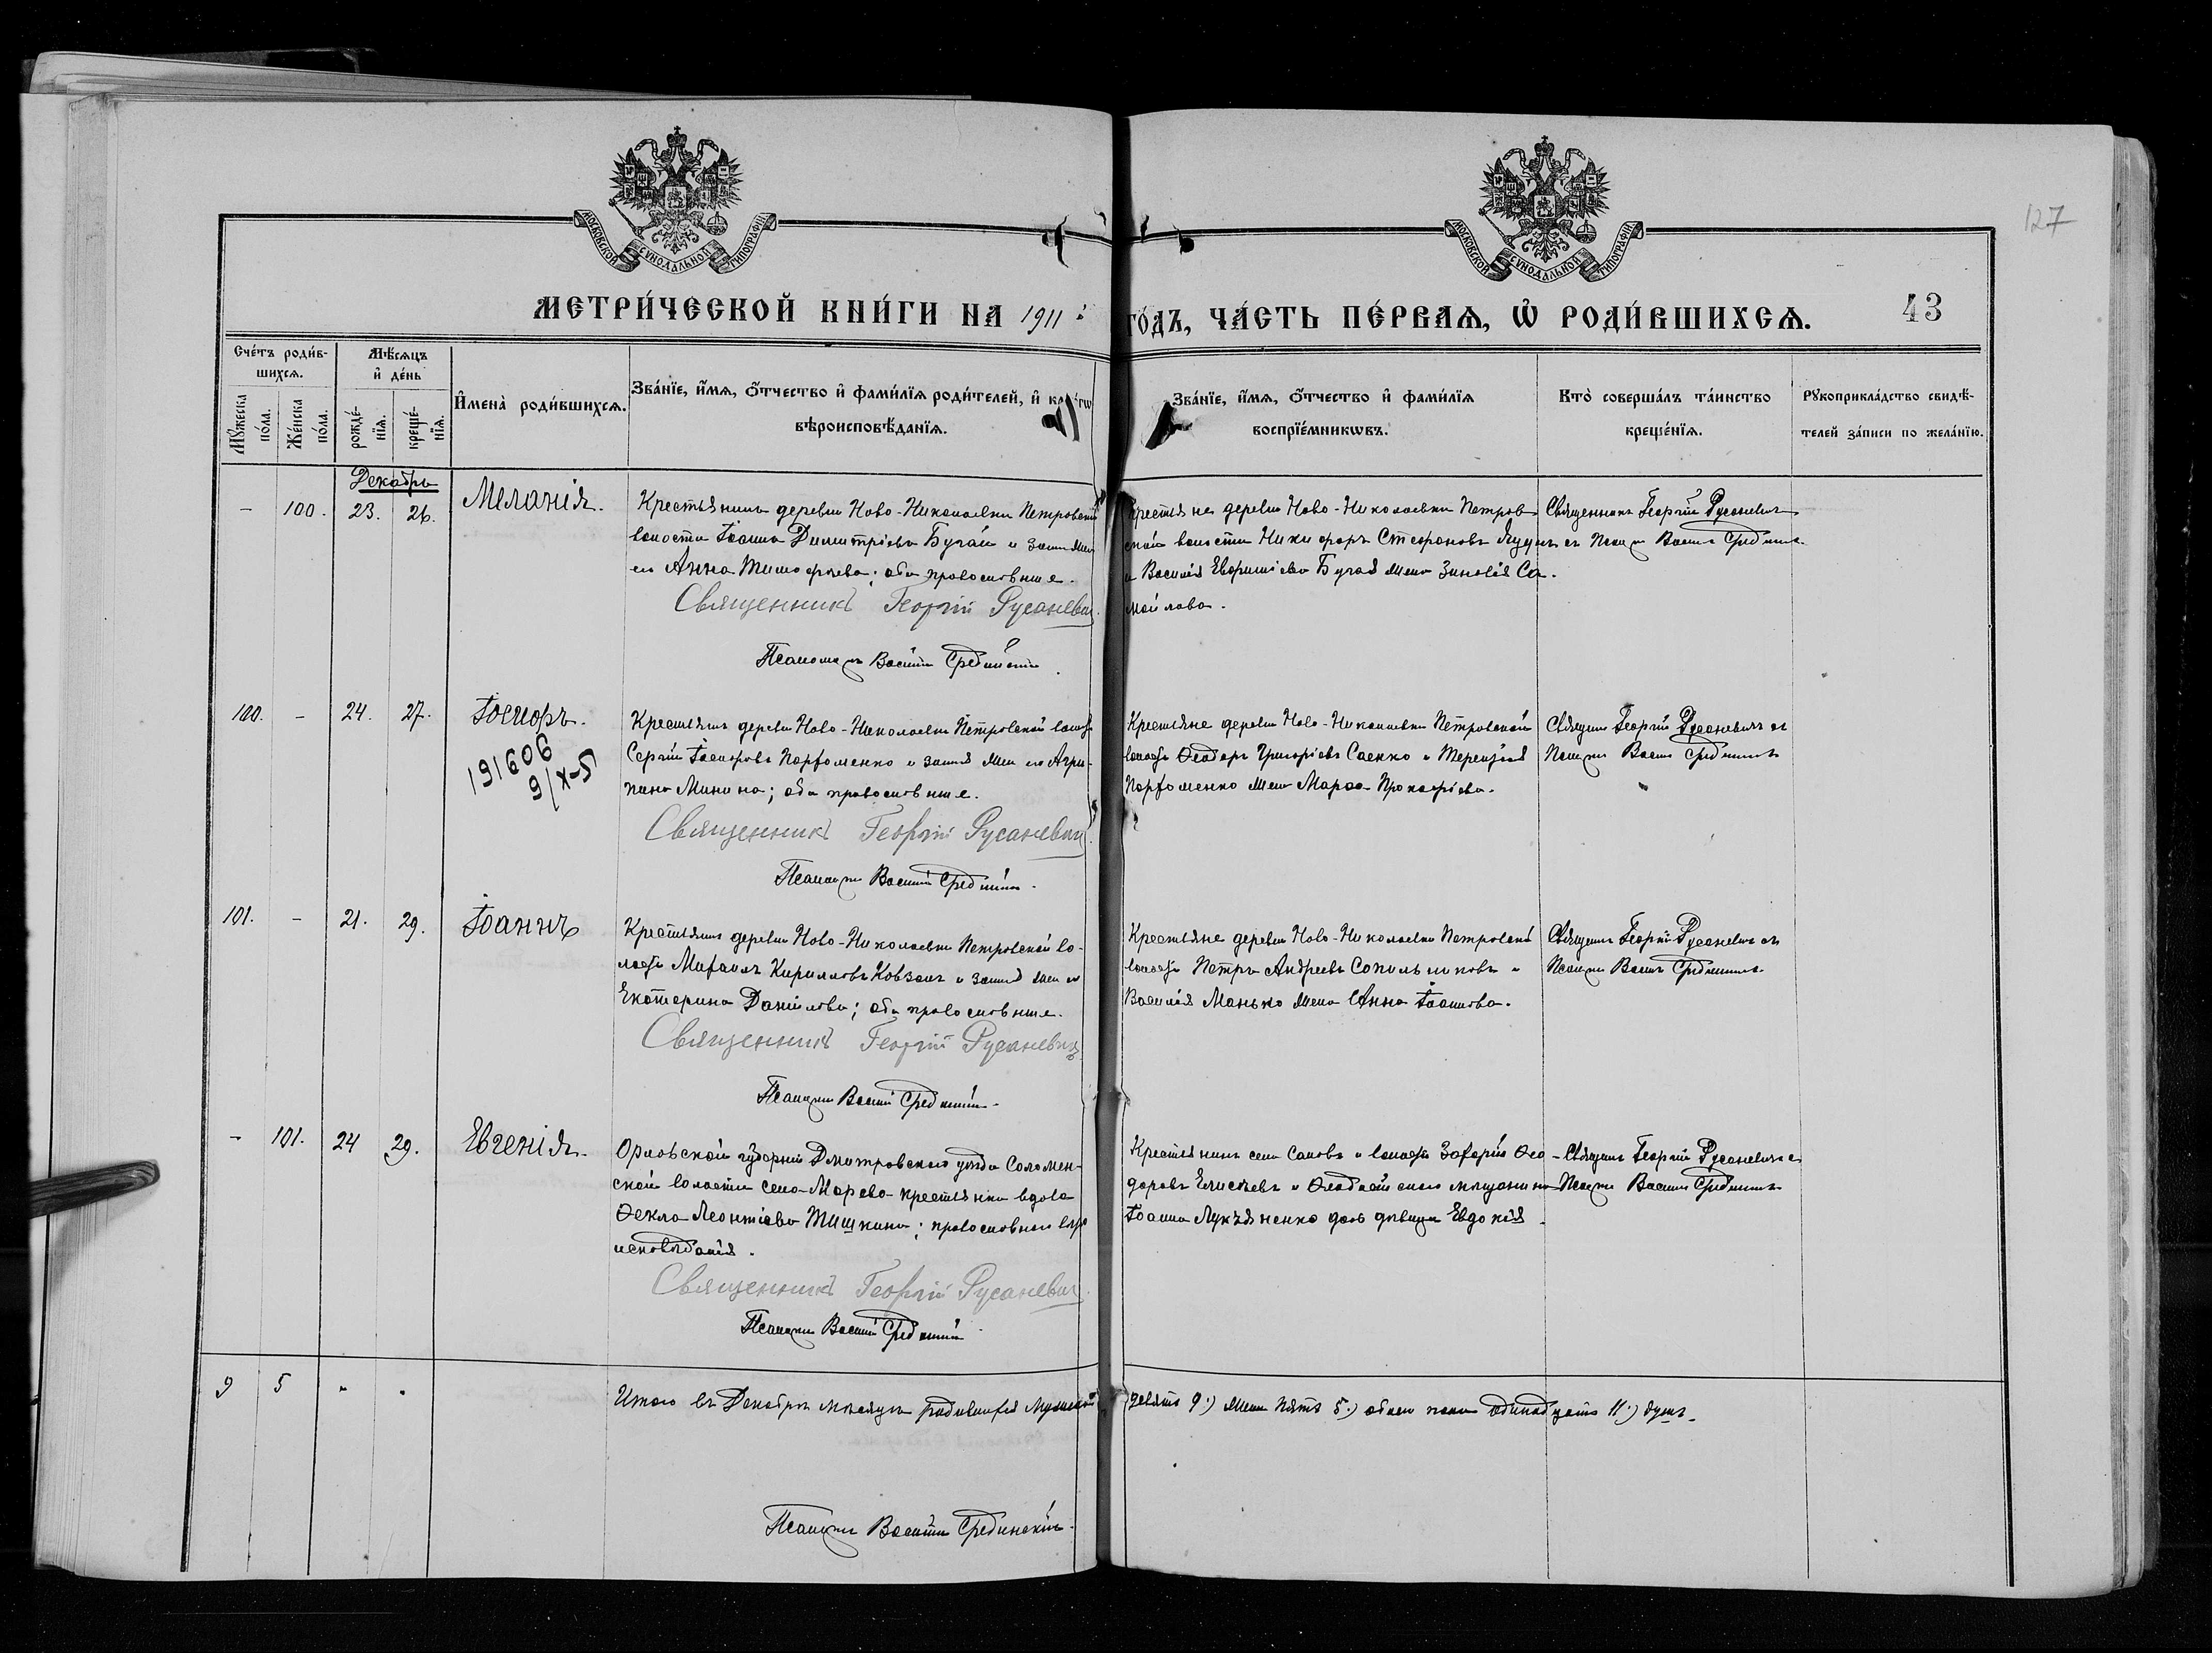 МОСКОВСКОЙ СѴНОДАЛЬНОЙ ТИПОГРАФІИ
МОСКОВСКОЙ СѴНОДАЛЬНОЙ ТИПОГРАФІИ
127
МЕТРИ́ЧЕСКОЙ КНИ́ГИ НА 1911
ГО́ДЪ, ЧА́СТЬ ПЕ́РВАѦ, Ѡ҆ РОДИ́ВШИХСѦ.
43
Сче́тъ роди́в-
шихсѧ.
Мѣ́сѧцъ
и҆ де́нь
Мꙋ́жеска
по́ла.
Же́нска
по́ла.
рожде́-
нїѧ.
креще́-
нїѧ.
И҆мена̀ роди́вшихсѧ.
Зва́нїе, и҆́мѧ, ѻ҆́тчество и҆ фами́лїѧ роди́телей, и҆
вѣроисповѣ́данїѧ.
Зва́нїе, и҆́мѧ, ѻ҆́тчество и҆ фами́лїѧ
воспрїе́мникѡвъ.
Кто̀ соверша́лъ та́инство
креще́нїѧ.
Рꙋкоприкла́дство свидѣ́-
телей за́писи по жела́нїю.
Декабрь
- 100. 23. 26. Меланія.
Крестьянинъ деревни Ново-Николаевки Петровской
волости Іоаннъ Димитріевъ Бугай и
Анна Тимофѣева; оба православные.
Священникъ Георгій Русаневич
Псаломщикъ Василій Срединскій
Крестьяне деревни Ново-Николаевки Петров-
ской волости Никифоръ Стефановъ
и Василія Бугая жена Зиновія Са-
мойлова.
Священникъ Георгій Русаневич
съ Псаломщ Васил Срединск
100. - 24. 27. Іосифъ.
191606
9/X-51
Крестьянинъ деревни Ново-Николаевки Петровской
Сергій Іосифовъ Парфоменко и Агри-
пина Минина; оба православные.
Священникъ Георгій Русаневич
Псаломщ Василій Срединск
Крестьяне деревни Ново-Николаевки Петровской
Ѳеодоръ Григоріевъ Саенко и Терентія
Парфоменко жена Марѳа Прокофіева.
Священ Георгій Русаневичъ съ
Псаломщ Васил Срединск
101. - 21. 29. Іоаннъ
Крестьянинъ деревни Ново-Николаевки Петровской во-
лости Михаилъ Кирилловъ Ковзанъ и
Екатерина Данилова; оба православные.
Священникъ Георгій Русаневич
Псаломщ Василій Срединскій
Крестьяне деревни Ново-Николаевки Петровской
волости Петръ Андреевъ Сопильниковъ и
Василія Манько жена Анна Іоаннова.
Священ Георгій Русаневич съ
Псаломщ Васил Срединск
- 101. 24 29. Евгенія.
Орловской губерніи Дмитровскаго уѣзда Соломен-
ской волости села Марева крестьянка вдова
Ѳекла Леонтіева Тишкина; православнаго вѣро-
исповѣданія.
Священникъ Георгій Русаневич
Псаломщ Василій Срединскій
Крестьянинъ села и волости Захарій Ѳео-
доровъ Елисѣевъ и мѣщанина
Іоанна Лукьяненко дочь дѣвица Евдокія.
Священ Георгій Русаневичъ съ
Псаломщ Васил Срединск
9 5 " "
Итого въ Декабрѣ мѣсяцѣ родившихся Мужеска
девять 9.) Жен пять 5.) обоего пола одинадцать 11.) душъ.
Псаломщ Василій Срединскій